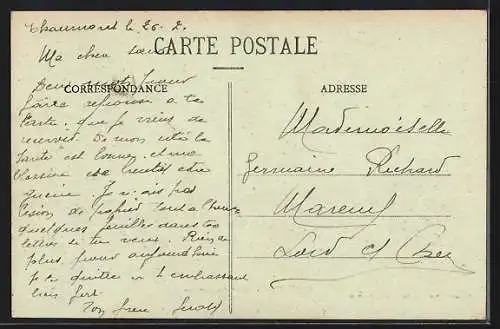 Chaumont le 26. 2.
Ma chère sœur
CARTE POSTALE
CORRESPONDANCE
ADRESSE
Deux mots pour
faire réponse a ta
Carte que je viens de
recevoir. De mon côté la
Santé est bonne, et ma
blessure est
guérie. Je n'ai pas
besoin de papier
quelques feuilles dans tes
lettres si tu veux. Rien de
plus pour aujourd'hui
je te quitte en t'embrassant
bien fort.
Ton frère
Mademoiselle
Germaine Richard
Mareuil
Loir et Cher